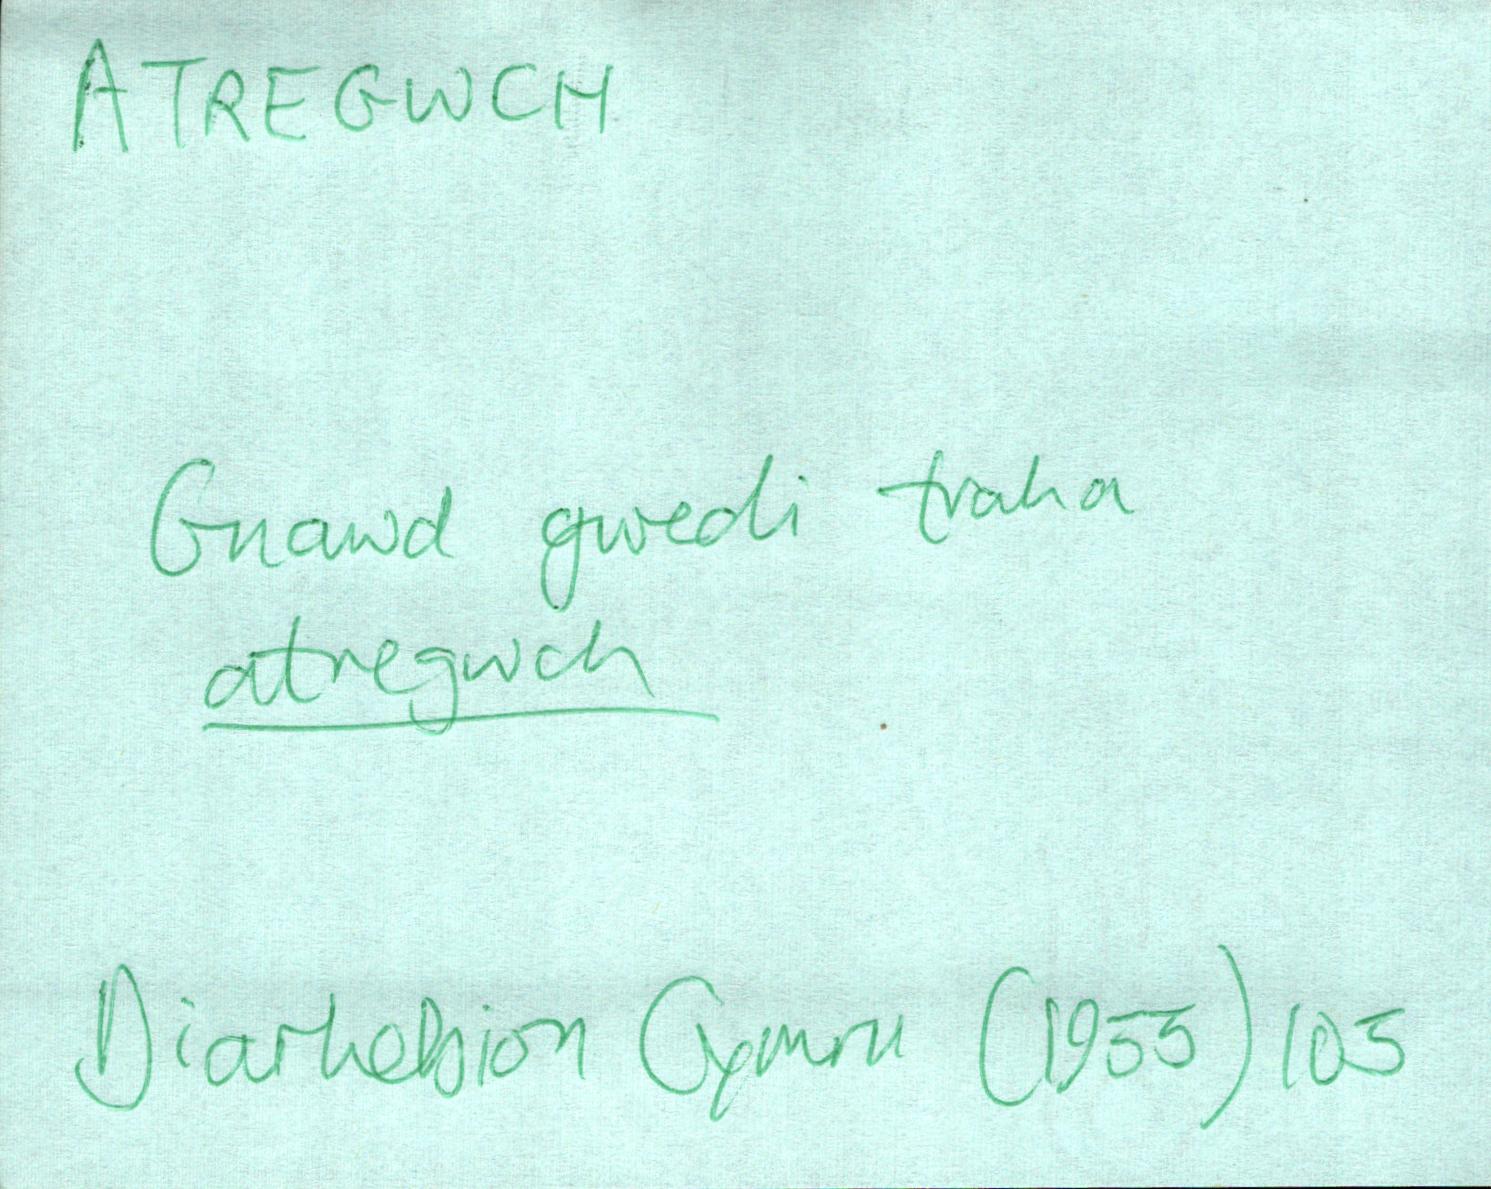 ATREGWCH
Gnawd gwedi traha
atregwch
Diarhebion Cymru (1955) 105